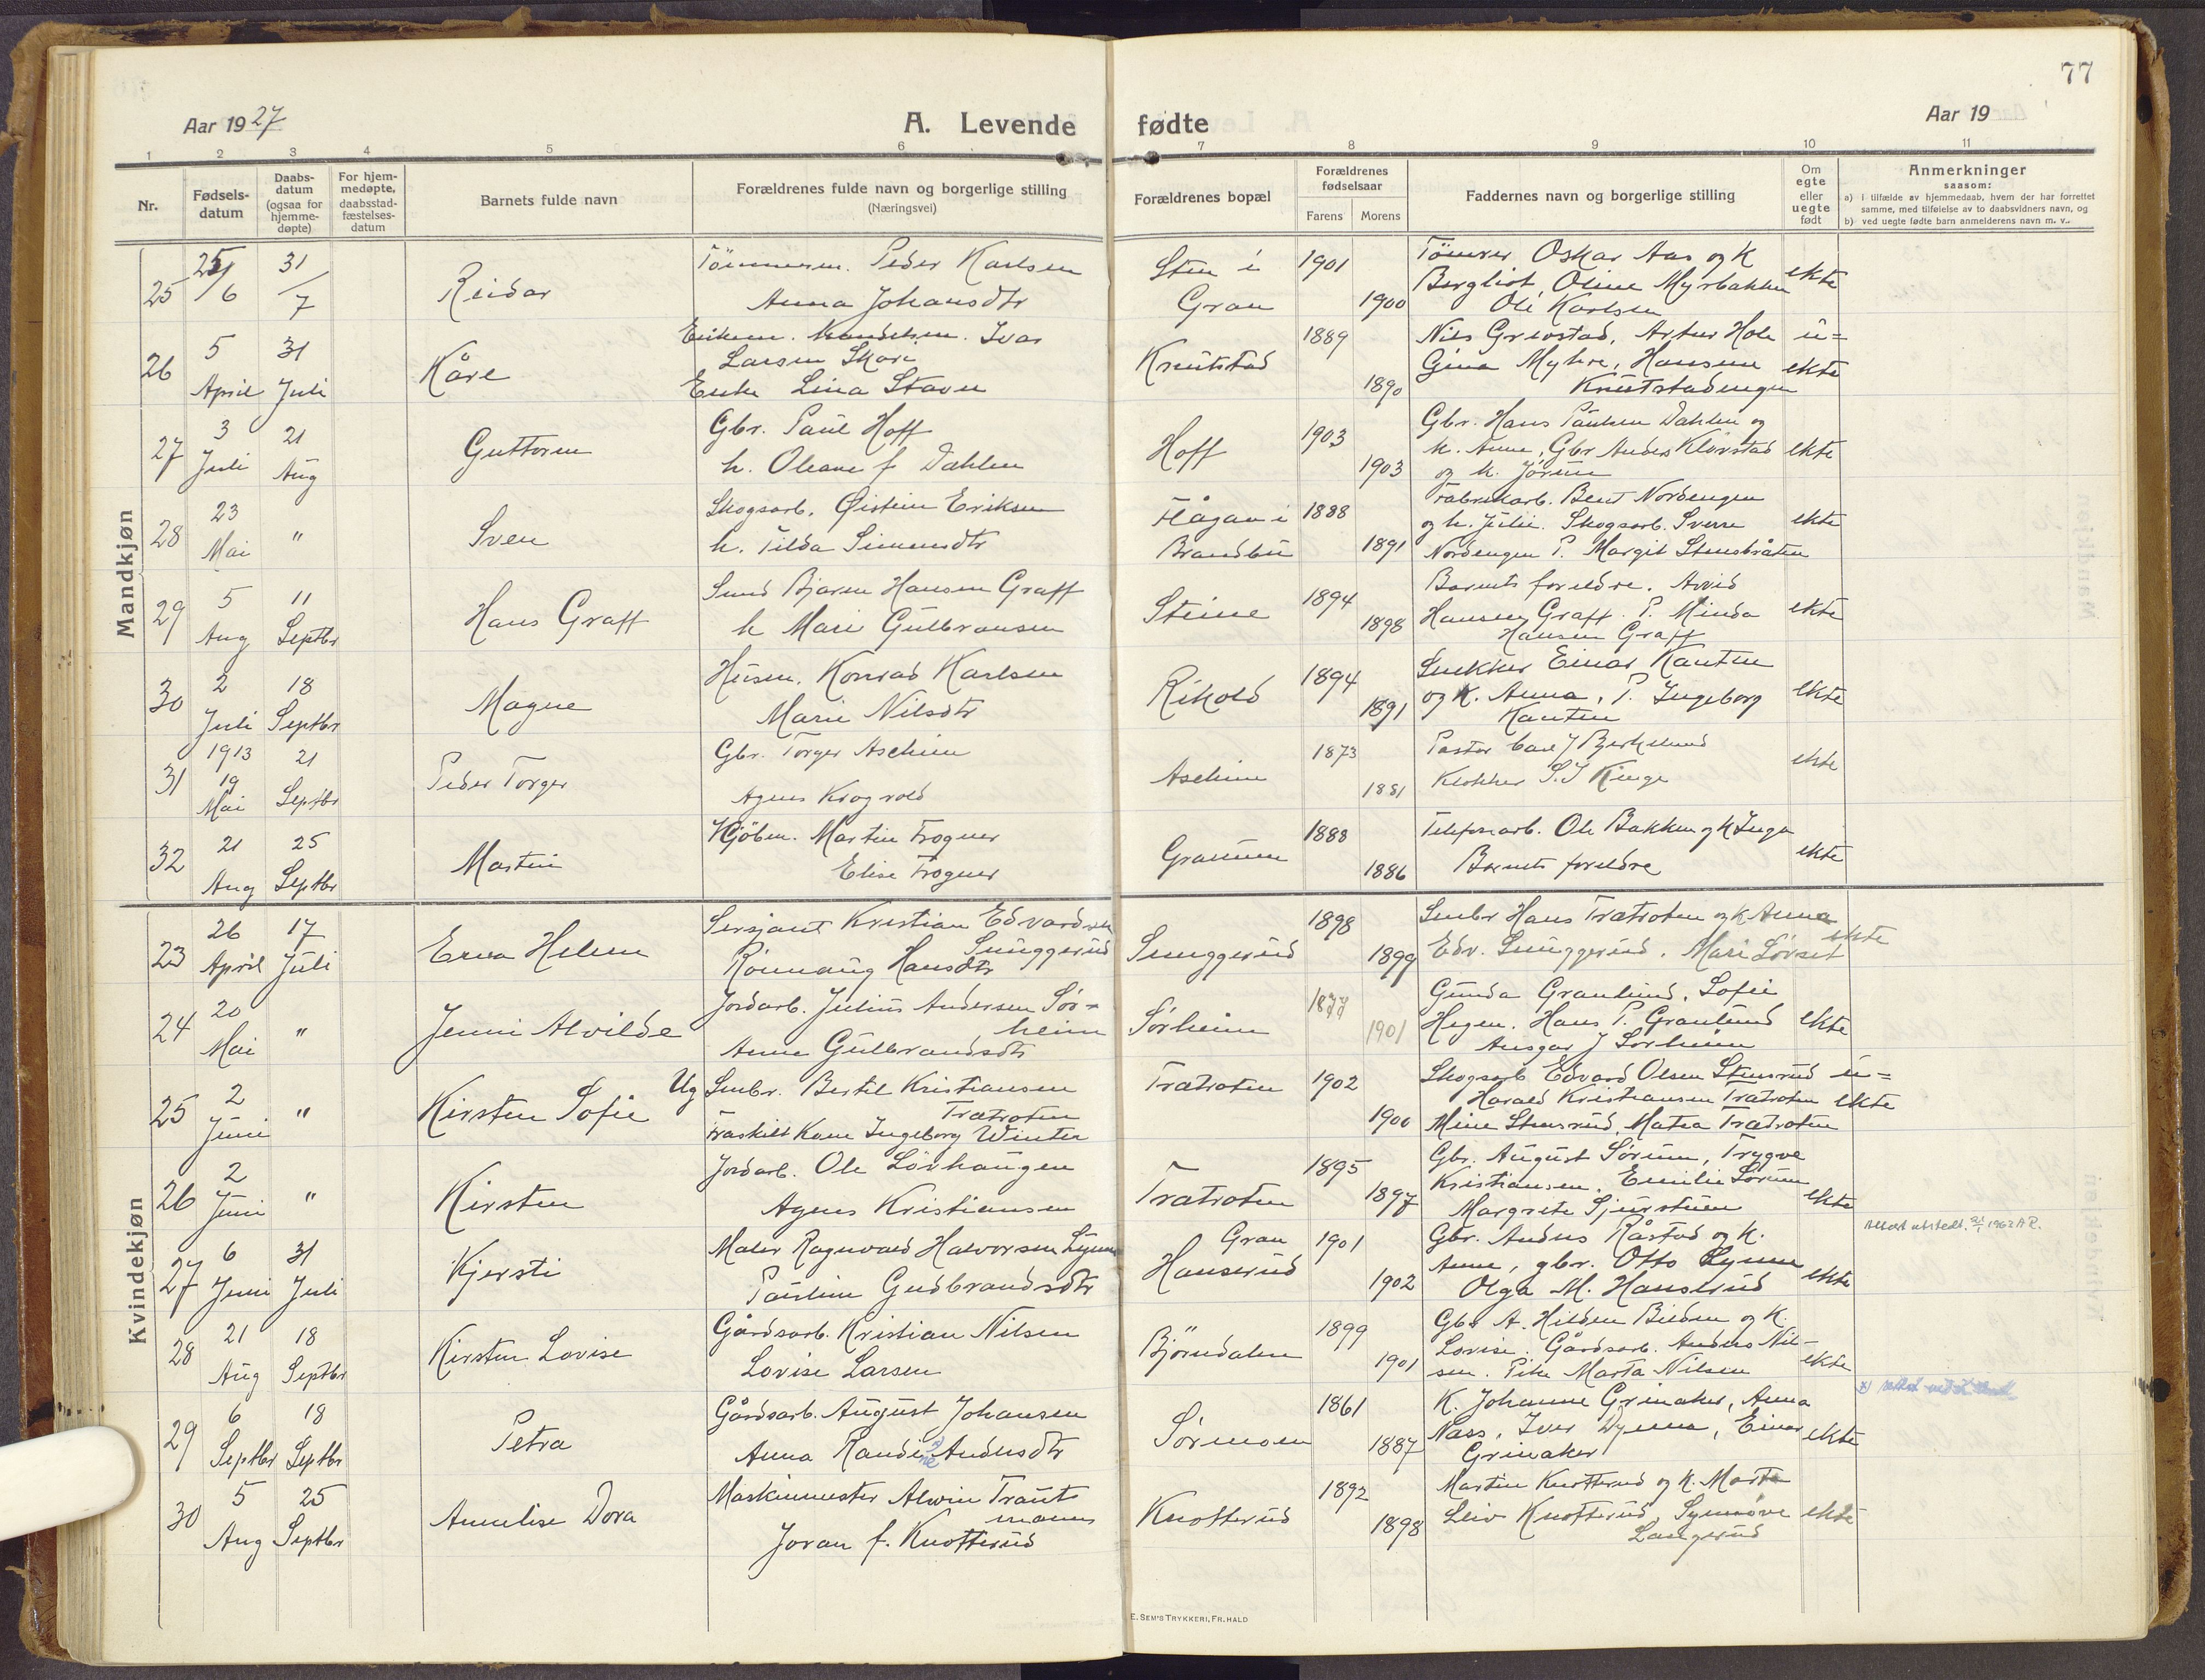 77
Aar 1927
A. Levende fødte
Aar 19
1 2 3 4 5 6 7 8 9 10 11
Nr.
Fødsels-
datum
Daabs-
datum
(ogsaa for
hjemme-
døpte)
For hjem-
medøpte,
daabsstad-
fæstelses-
datum
Barnets fulde navn
Forældrenes fulde navn og borgerlige stilling
(Næringsvei)
Forældrenes bopæl
Forældrenes
fødselsaar
Farens Morens
Faddernes navn og borgerlige stilling
Om
egte
eller
uegte
født
Anmerkninger
saasom:
a) i tilfælde av hjemmedaab, hvem der har forrettet
samme, med tilføielse av to daabsvidners navn, og
b) ved uegte fødte barn anmelderens navn m. v..
Mandkjøn
25 25/6 31/7 Reidar
Peder Karlsen
Anna Johansdtr
Sten i
Gran
1901
1900
Tömrer Oskar Aas og K
Bergliot, Oline Myrbakken
Ole Karlsen
ekte
26 5 April 31 Juli Kåre
Ivar
Larsen Skare
Enke Lina Staven
Knutstad
1889
1890
Nils Grevstad, Artur Hole
Gina Myhre, Hansen
Knutstadengen
u=
ekte
27 3 Juli 21 Aug Guttorm
Gbr. Paul Hoff
h. Oleane f. Dahlen
Hoff
1903
1903
Gbr. Hans Paulsen Dahlen og
k. Anne, Gbr Anders Klovstad
og k. Jörun
ekte
28 23 Mai " Sven
Skogsarb. Øistein Eriksen
h. Tilda Simensdtr
Hågår i
Brandbu
1888
1891
Fabrikarb. Bent Nordengen
og h. Julie. Skogsarb. Sverre
Nordengen P. Margit Stensbråten
ekte
29 5 Aug 11 Septbr Hans Graff
Smed Bjarne Hansen Graff
h Mari Gulbransen
Steine
1894
1898
Barnets foreldre. Arvid
Hansen Graff. P. Minda
Hansen Graff
ekte
30 2 Juli 18 Septbr Magne
Husm. Konrad Karlsen
Marie Nilsdtr
Rikold
1894
1891
Snekker Einar Kanten
og K. Anna, P. Ingeborg
Kanten
ekte
31 1913 19 Mai 21 Septbr Peder Torger
Gbr. Torger Aschim
Agnes Krogvold
Aschim
1873
1881
Pastor Carl J Bjerkelund
Klokker S. J Kinge
ekte
32 21 Aug 25 Septbr Martin
Kjöbm. Martin Frogner
Elise Frogner
Granum
1888
1886
Telefonarb. Ole Bakken og k Inga
Barnets foreldre
ekte
Kvindekjøn
23 26 April 17 Juli Erna Helene
Sersjant Kristian Edvardsen
Smuggerud
Rönnaug Hansdtr
Smuggerud
1898
1899
Smbr Hans Trætroten og k Anna
Edv. Smuggerud. Mari Lövset
ekte
24 20 Mai " Jenni Alvilde
Jordarb. Julius Andersen Sör-
heim
Anne Gulbrandsdtr
Sörheim
1877
1901
Gunda Granlund. Sofie
Hegen. Hans P. Granlund
Ansgar J Sörheim
ekte
25 2 Juni " Kirsten Sofie
Ug Smbr. Bertil Kristiansen
Trætroten
Fraskilt Kone Ingeborg Winter
Trætroten
1902
1900
Skogsarb Edvard Olsen Stensrud
Harald Kristiansen Trætroten
Mine Stensrud, Matea Trætroten
u=
ekte
26 2 Juni " Kirsten
Jordarb. Ole Lövhaugen
Agnes Kristiansen
Trætroten
1895
1897
Gbr. August Sörum, Trygve
Kristiansen. Emilie Sörum
Margrete Sjurstuen
ekte
27 6 Juni 31 Juli Kjersti
Maler Ragnvald Halvorsen Lynne
Pauline Gudbrandsdtr
Gran
Hanserud
1901
1902
Gbr. Anders Råstad og K.
Anne, gbr. Otto Lynne
Olga M. Hanserud
ekte
Attest utstedt. 1962 A R.
28 21 Aug 18 Septbr Kirsten Lovise
Gårdsarb. Kristian Nilsen
Lovise Larsen
Björndalen
1899
1901
Gbr A. Hilden Bilden og K.
Lovise. Gårdsarb. Anders Nil-
sen. Pike Marta Nilsen
ekte
29 6 Septbr 18 Septbr Petra
Gårdsarb. August Johansen
Anna Randine Andersdtr
Sörmoen
1861
1887
K. Johanne Grinaker, Anna
Næss, Iver Dynna, Einar
Grinaker
ekte
30 5 Aug 25 Septbr Annelise Dora
Maskinmester Alwin Traut
mann
Joran f. Knotterud
Knotterud
1892
1898
Martin Knotterud og k. Marte
Leiv Knotterud Synnøve
Langerud
ekte
E. SEM'S TRYKKERI, FR.HALD